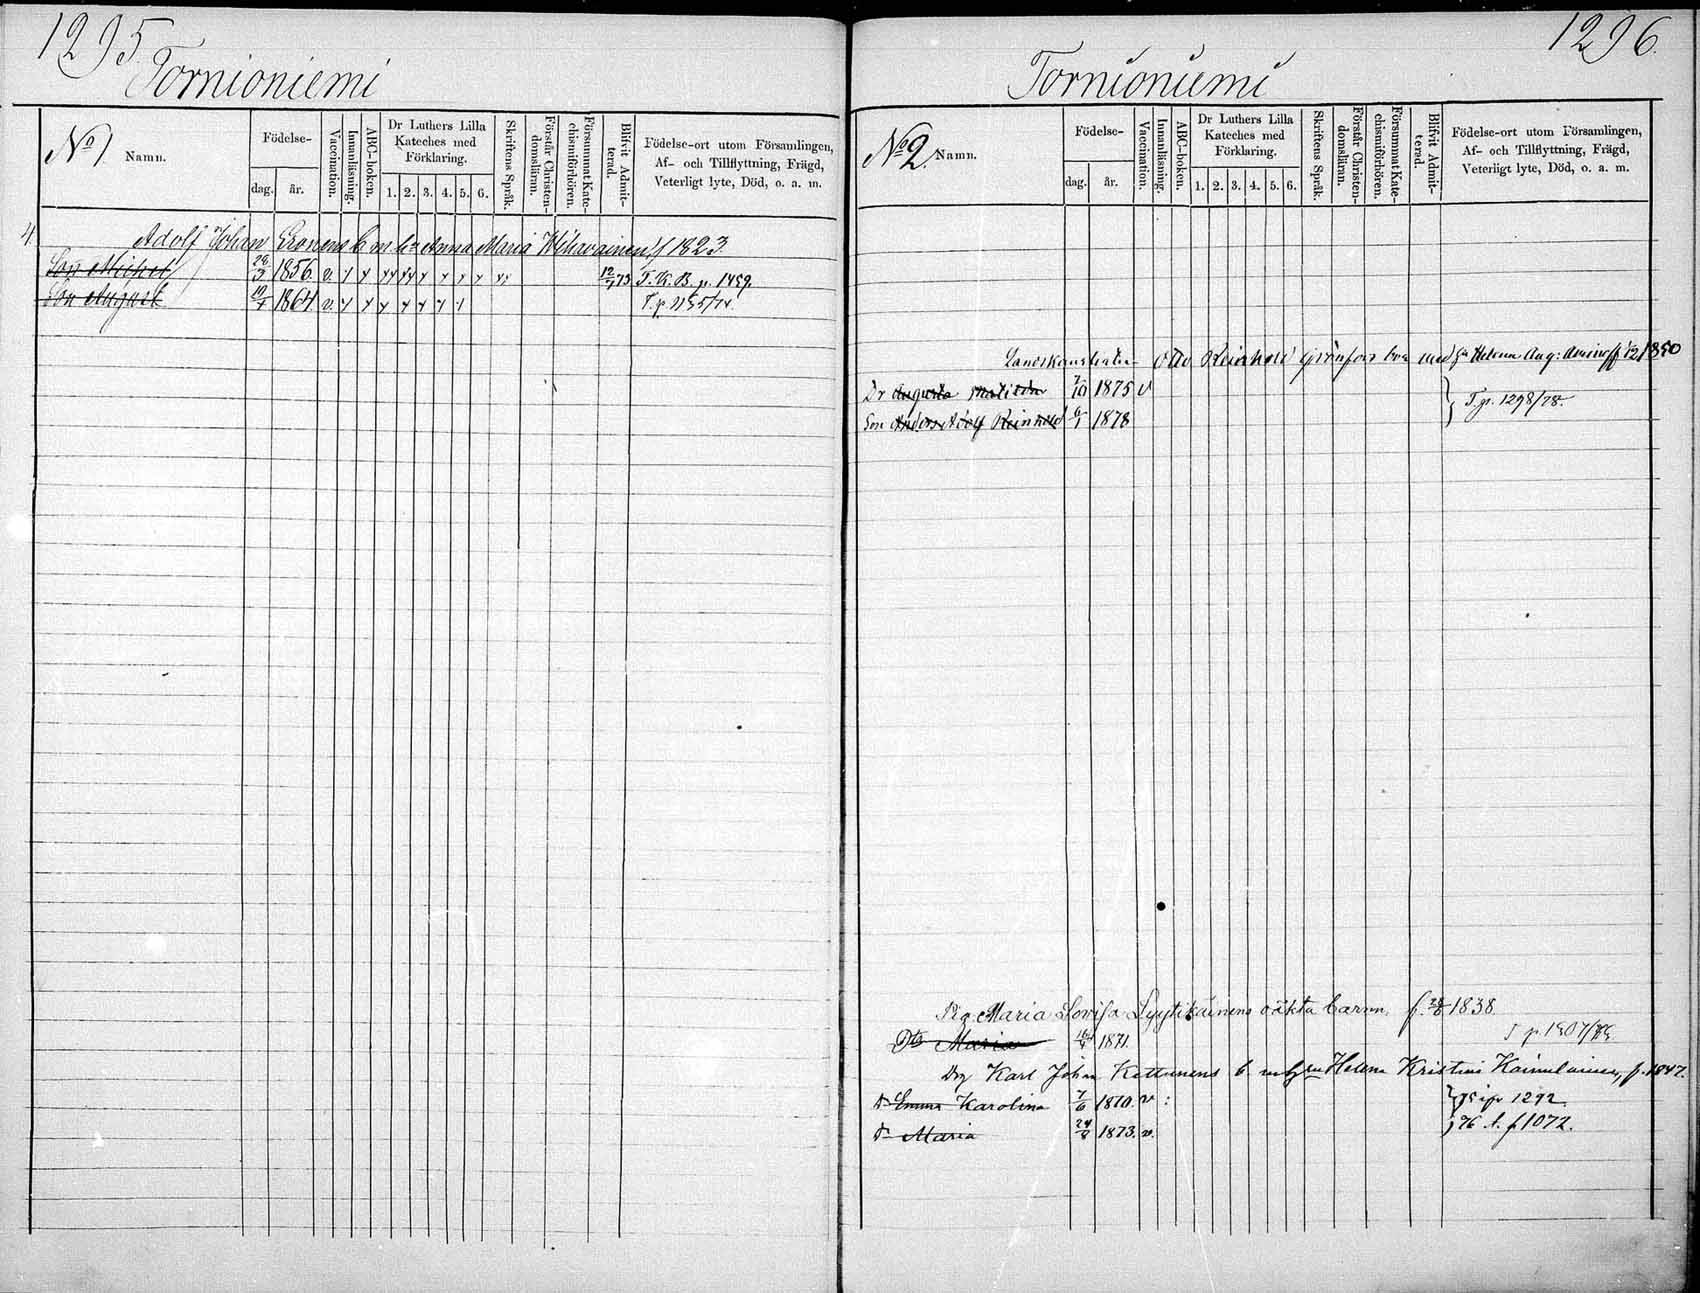 1295.
Tornioniemi
No 1 Namn.
Födelse-
dag. år.
Vaccination.
Innanläsning.
ABC-boken.
Dr Luthers Lilla Kateches med Förklaring.
1. 2. 3. 4. 5. 6.
Skriftens Språk.
Förstår Christendomsläran.
Försummat Katechismiförhören.
Blifvit Admitterad.
Födelse-ort utom Församlingen, Af- och Tillflyttning, Frägd, Veterligt lyte, Död, o. a. m.
4
Adolf Johan Eronens b. m. h. Anna Maria 1823.
Son Michel 28/3 1856. v. 12/1 73 T. K. B. p. 1459.
Son August 10/4 1864. v.
1296.
Tornioniemi
No 2. Namn.
Födelse-
dag. år.
Vaccination.
Innanläsning.
ABC-boken.
Dr Luthers Lilla Kateches med Förklaring.
1. 2. 3. 4. 5. 6.
Skriftens Språk.
Förstår Christendomsläran.
Försummat Katechismiförhören.
Blifvit Admitterad.
Födelse-ort utom Församlingen, Af- och Tillflyttning, Frägd, Veterligt lyte, Död, o. a. m.
Otto Reinhold Grönfors med Helena Aug: Aminoff 1/12 1850
Dr Augusta Matilda 7/10 1875 v
Son Anders Adolf Reinhold 6/1 1878
T. p. 1298/78.
Pig. Maria Lovisa Lyytikäinens oäkta barnn. f. 1838
Maria 16/4 1871.
T p 1307/
Drg Karl Johan Kettunens b. m. Helena Kristina Kainulainen, f. 1847.
Dr Emma Karolina 7/6 1870. v
Dr Maria 24/8 1873. v.
1292
76 f. p 1072.